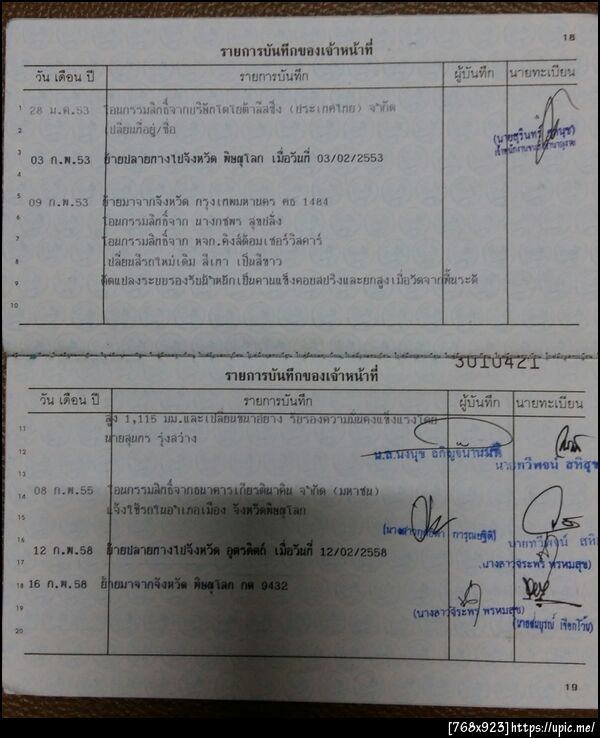 18
รายการบันทึกของเจ้าหน้าที่
วัน เดือน ปี รายการบันทึก ผู้บันทึก นายทะเบียน
1 28 ม.ค.53 โอนกรรมสิทธิ์จากบริษัทโตโยต้าลีสซิ่ง (ประเทศไทย) จำกัด
2 เปลี่ยนที่อยู่/ชื่อ
3 03 ก.พ.53 ย้ายปลายทางไปจังหวัด พิษณุโลก เมื่อวันที่ 03/02/2553
4
5 09 ก.พ.53 ย้ายมาจากจังหวัด กรุงเทพมหานคร ศธ 1484
6 โอนกรรมสิทธิ์จาก นางกชพร สุขปลั่ง
7 โอนกรรมสิทธิ์จาก หจก.คิงส์ด้อมเซอร์วิสคาร์
8 เปลี่ยนสีรถใหม่เดิม สีเทา เป็นสีขาว
9 ดัดแปลงระบบรองรับน้ำหนักเป็นคานแข็งคอยสปริงและยกสูงเมื่อวัดจากพื้นระดั
10
3010421
รายการบันทึกของเจ้าหน้าที่
วัน เดือน ปี รายการบันทึก ผู้บันทึก นายทะเบียน
11 สูง 1,115 มม.และเปลี่ยนขนาดยาง รับรองความมั่นคงแข็งแรงโดย
12 นายสุนทร รุ่งสว่าง
13 นายทวีพจน์
14 08 ก.พ.55 โอนกรรมสิทธิ์จากธนาคารเกียรตินาคิน จำกัด (มหาชน)
15 แจ้งใช้รถในอำเภอเมือง จังหวัดพิษณุโลก
16 นายทวีพจน์
17 12 ก.พ.58 ย้ายปลายทางไปจังหวัด อุตรดิตถ์ เมื่อวันที่ 12/02/2558
(นางสาวจีระพร พรหมสุข)
18 16 ก.พ.58 ย้ายมาจากจังหวัด พิษณุโลก กต 9432
19 (นางสาวจีระพร พรหมสุข)
20
19
[768x923]https://upic.me/